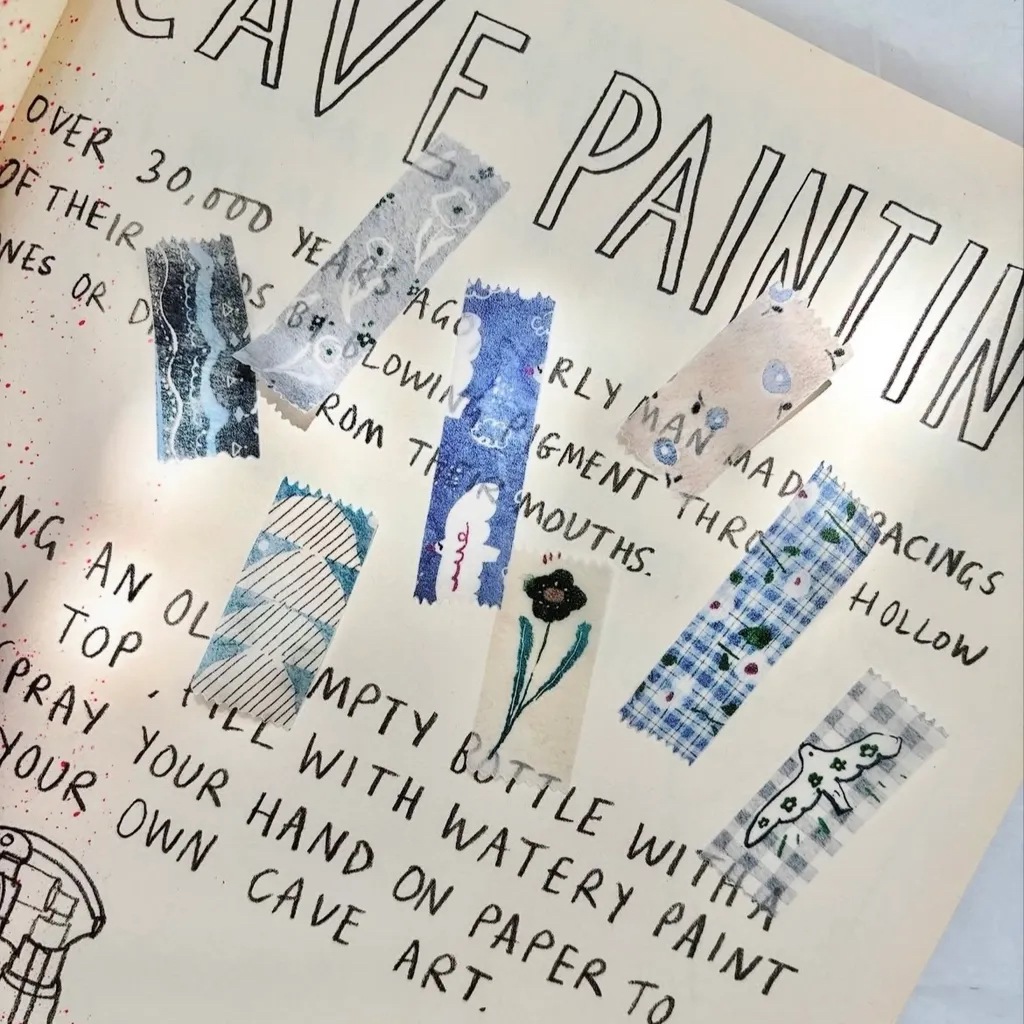 CAVE PAINTIN
OVER 30,000 YEARS AGO RLY MAN MAD RACINGS
OF THEIR DS BY BLOWING PIGMENT THRO HOLLOW
NES OR D ROM THEIR MOUTHS.
ING AN OL MPTY BOTTLE WITH A
Y TOP, FILL WITH WATERY PAINT
SPRAY YOUR HAND ON PAPER TO
YOUR OWN CAVE ART.